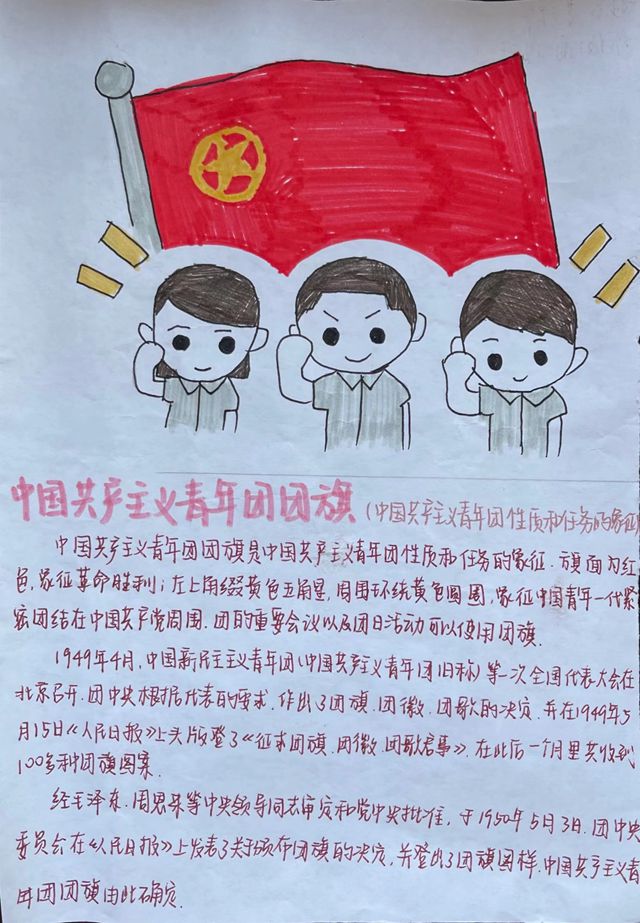 中国共产主义青年团团旗(中国共产主义青年团性质和任务的象征
中国共产主义青年团团旗是中国共产主义青年团性质和任务的象征.旗面为红
色,象征革命胜利;左上角缀黄色五角星,周围环绕黄色圆圈,象征中国青年一代紧
密团结在中国共产党周围.团的重要会议以及团日活动可以使用团旗.
1949年4月,中国新民主主义青年团(中国共产主义青年团旧称)第一次全国代表大会在
北京召开.团中央根据代表的要求.作出了团旗.团徽.团歌的决定.并在1949年5
月15日《人民日报》上头版登了《征求团旗.团徽.团歌启事》.在此后一个月里共收到
100多种团旗图案.
经毛泽东.周恩来等中央领导同志审定和党中央批准,于1950年5月3日.团中央
委员会在《人民日报》上发表了关于颁布团旗的决定,并登出了团旗图样.中国共产主义青
年团团旗由此确定.